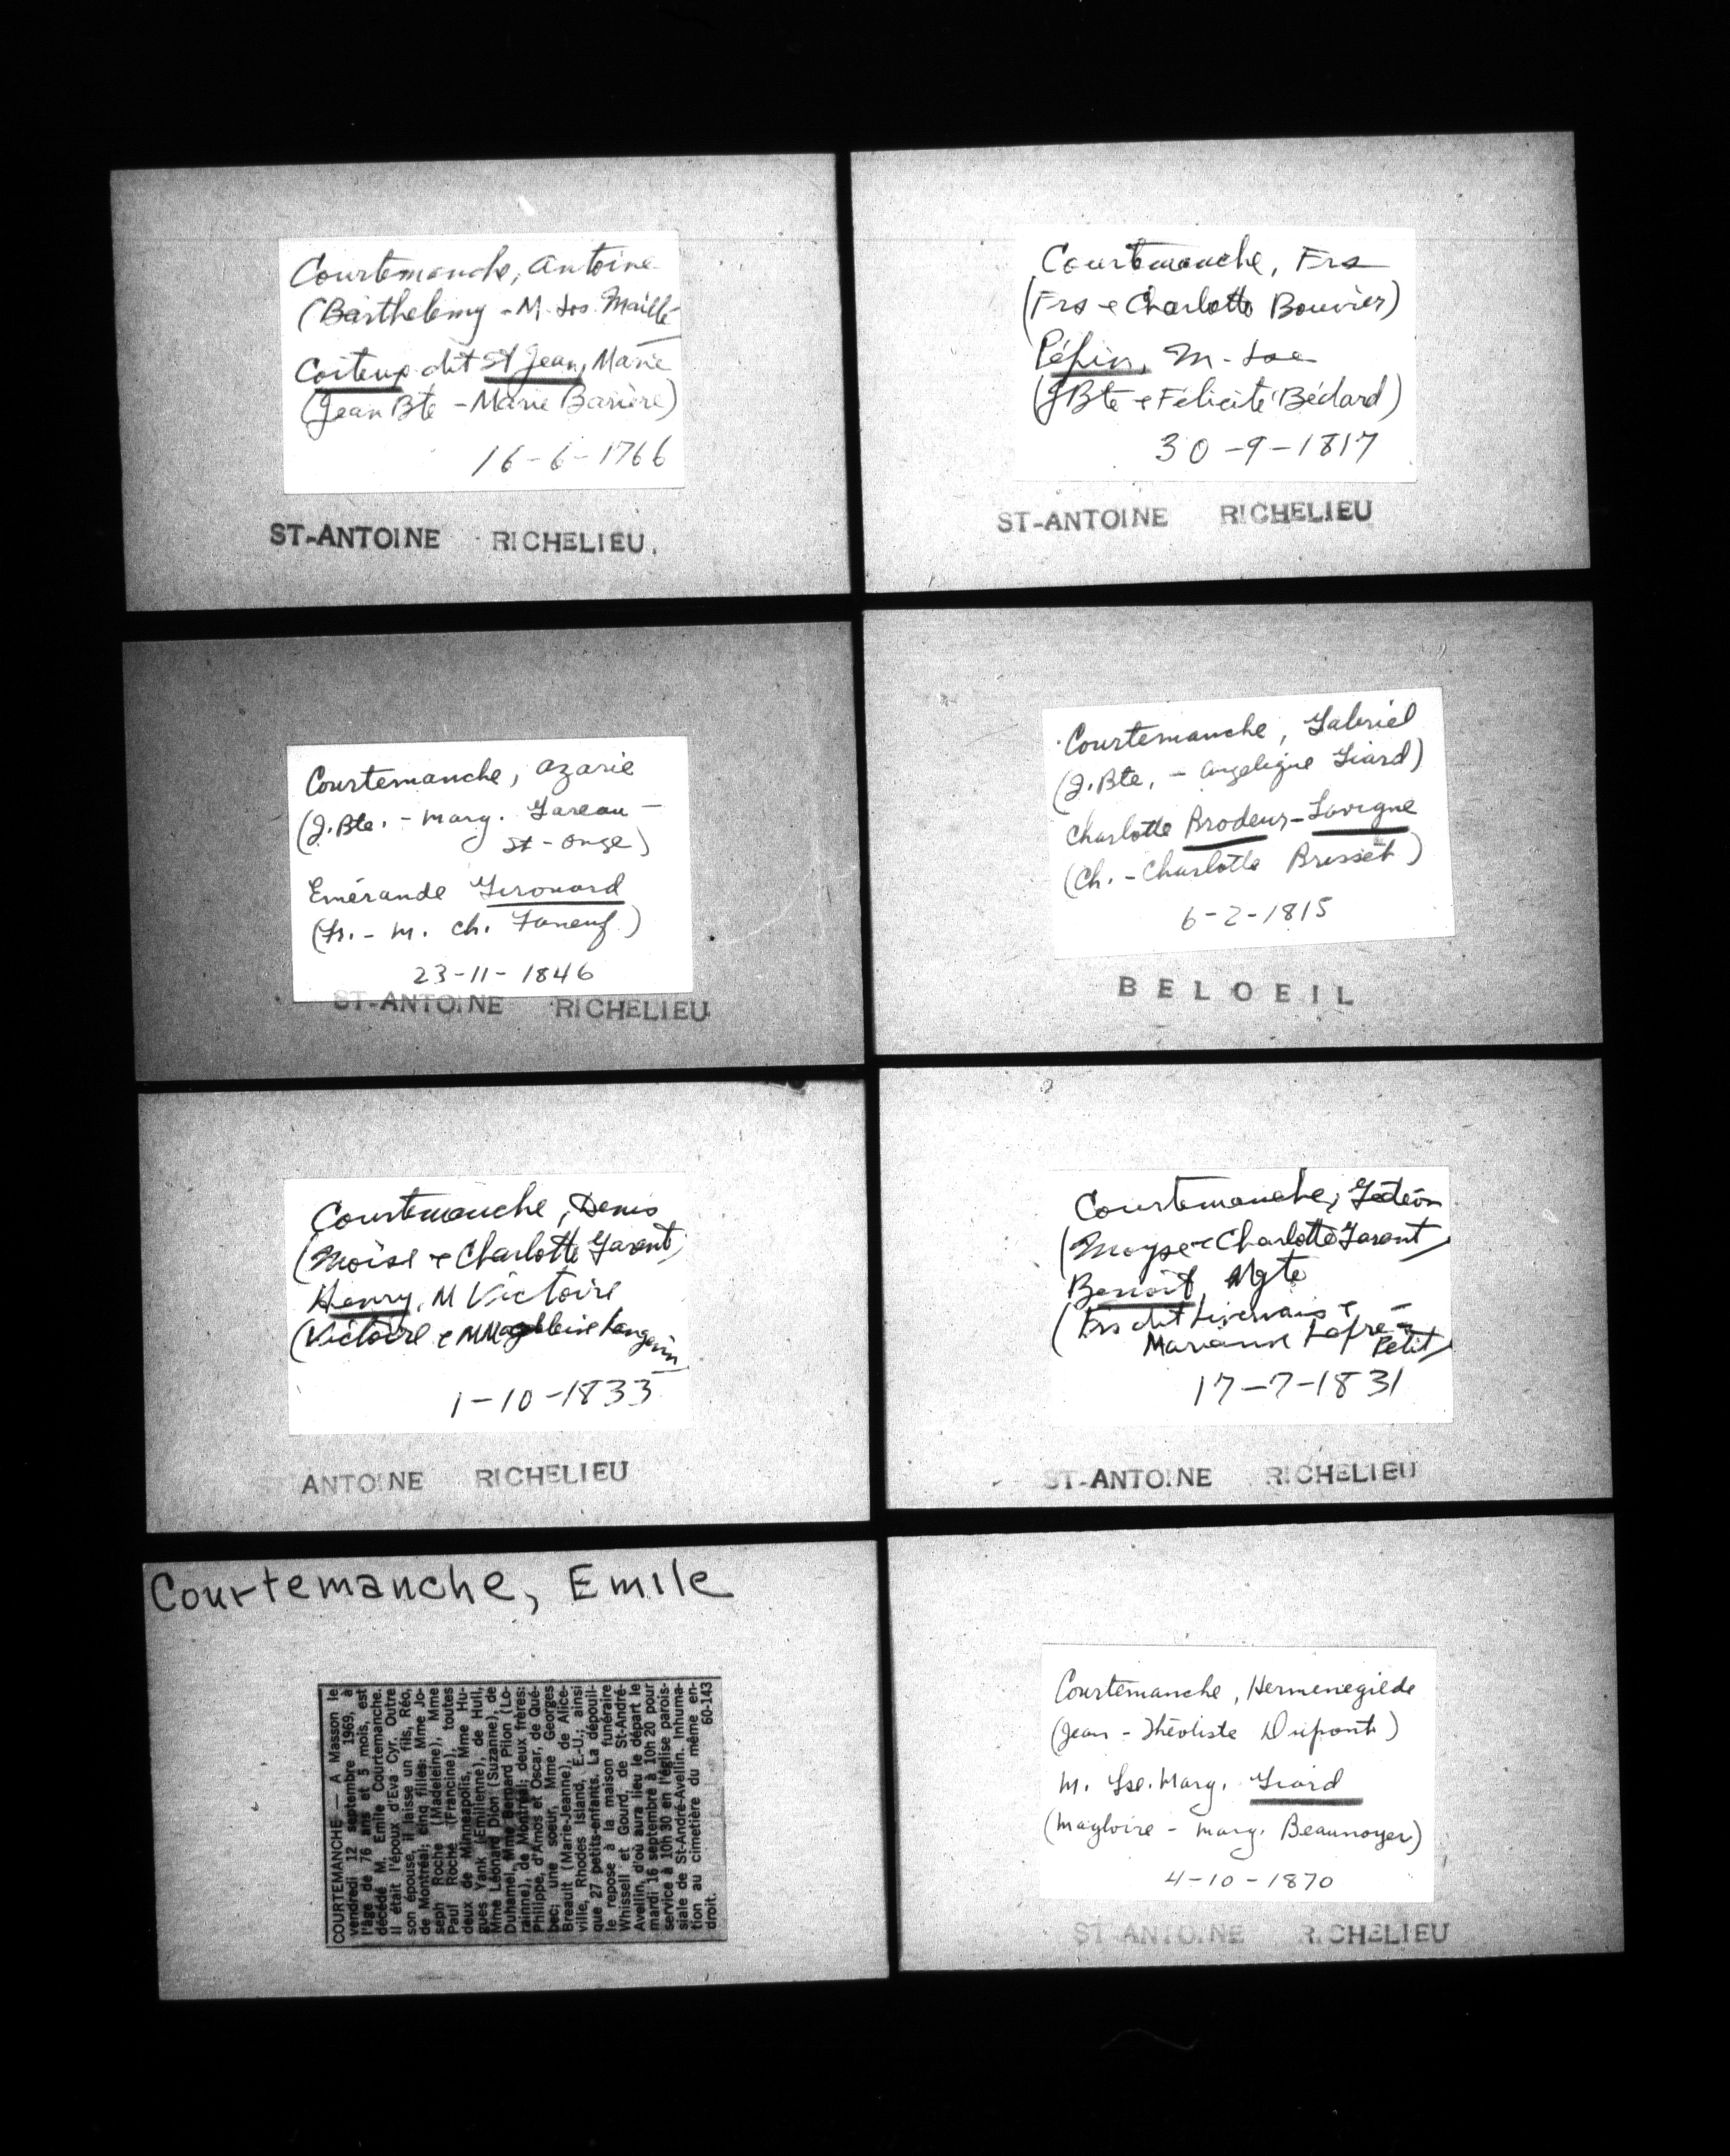 Courtemanche, Antoine
(Barthelemy - M. Jos. Maillé
Coiteux dit St Jean, Marie
(Jean Bte - Marie Barière)
16-6-1766
ST-ANTOINE RICHELIEU.
Courtemanche, Azarie
(J. Bte. - Marg. Gareau -
St-Onge)
Emérande Girouard
(Fr. - M. Ch. Faneuf)
23-11-1846
ST-ANTOINE RICHELIEU
Courtemanche, Denis
(Moïse & Charlotte Garant)
Henry, M Victoire
(Victoire & M Magdeleine Langevin
1-10-1833
ANTOINE RICHELIEU
Courtemanche, Emile
COURTEMANCHE — A Masson le
vendredi 12 septembre 1969, à
l'âge de 76 ans et 5 mois, est
décédé M. Emile Courtemanche.
Il était l'époux d'Eva Cyr. Outre
son épouse, il laisse un fils, Réo,
de Montréal; cinq filles: Mme Jo-
seph Roche (Madeleine), Mme
Paul Roche (Francine), toutes
deux de Minneapolis, Mme Hu-
gues Yank (Emilienne), de Hull,
Mme Léonard Dion (Suzanne), de
Duhamel, Mme Bernard Pilon (Lo-
rainne), de Montréal; deux frères:
Philippe, d'Amos et Oscar, de Qué-
bec; une soeur, Mme Georges
Breault (Marie-Jeanne), de Alice-
ville, Rhodes Island, E.-U.; ainsi
que 27 petits-enfants. La dépouil-
le repose à la maison funéraire
Whissell et Gourd, de St-André-
Avellin, d'où aura lieu le départ le
mardi 16 septembre à 10h 20 pour
service à 10h 30 en l'église parois-
siale de St-André-Avellin. Inhuma-
tion au cimetière du même en-
droit. 60-143
Courtemanche, Frs
(Frs & Charlotte Bouvier)
Pépin, M-Jse
(J Bte & Félicité Bédard)
30-9-1817
ST-ANTOINE RICHELIEU
Courtemanche, Gabriel
(J. Bte, - Angelique Giard)
Charlotte Brodeur-Lavigne
(Ch. - Charlotte Brisset)
6-2-1815
BELOEIL
Courtemanche, Gédéon
(Moyse & Charlotte Garant)
Benoit, Mgte
(Frs dit Livernais &
Marianne Lafre-
Petit)
17-7-1831
ST-ANTOINE RICHELIEU
Courtemanche, Hermenegilde
(Jean - Théotiste Dupont)
M. Lse. Marg. Giard
(Magloire - Marg. Beaunoyer)
4-10-1870
ST ANTOINE RICHELIEU